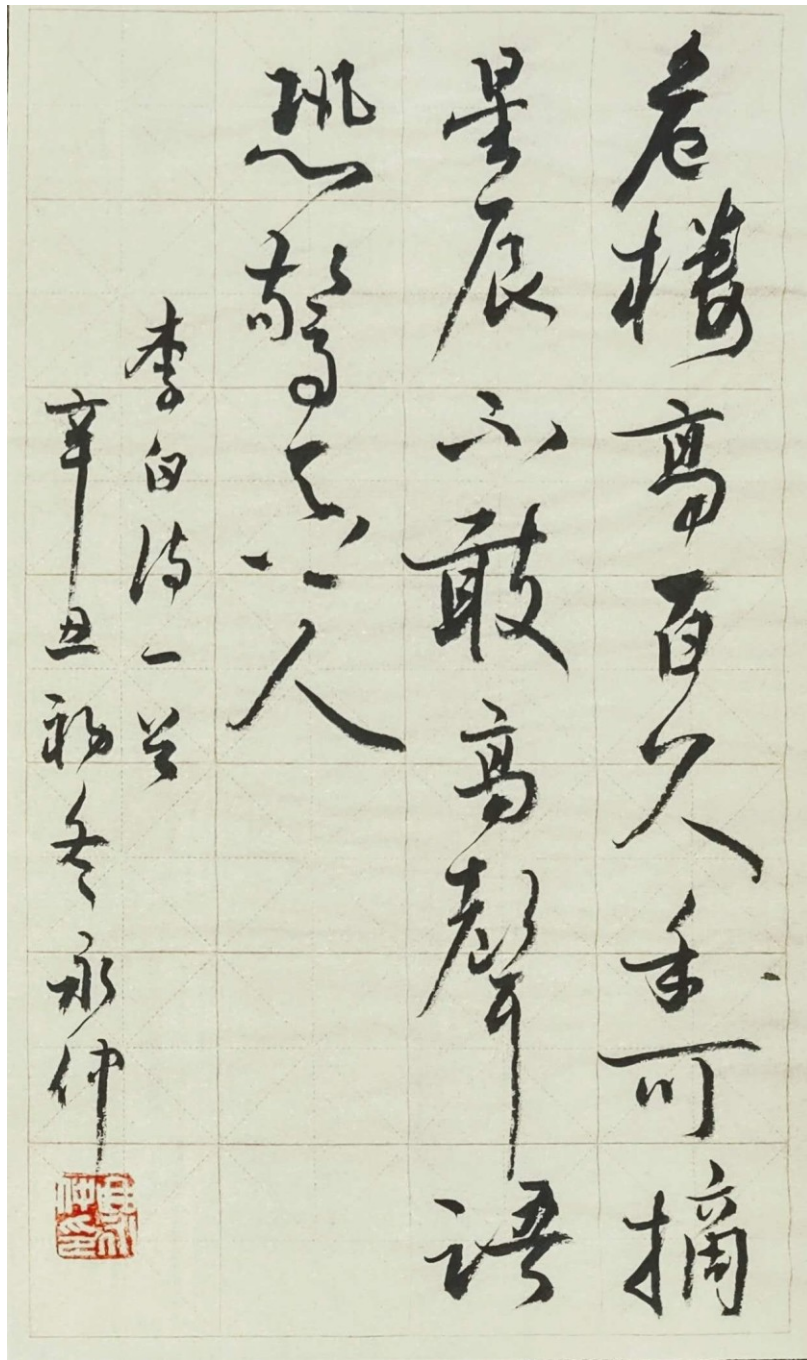 危樓高百尺手可摘
星辰不敢高聲語
恐驚天上人
李白诗一首
辛丑初冬永仲